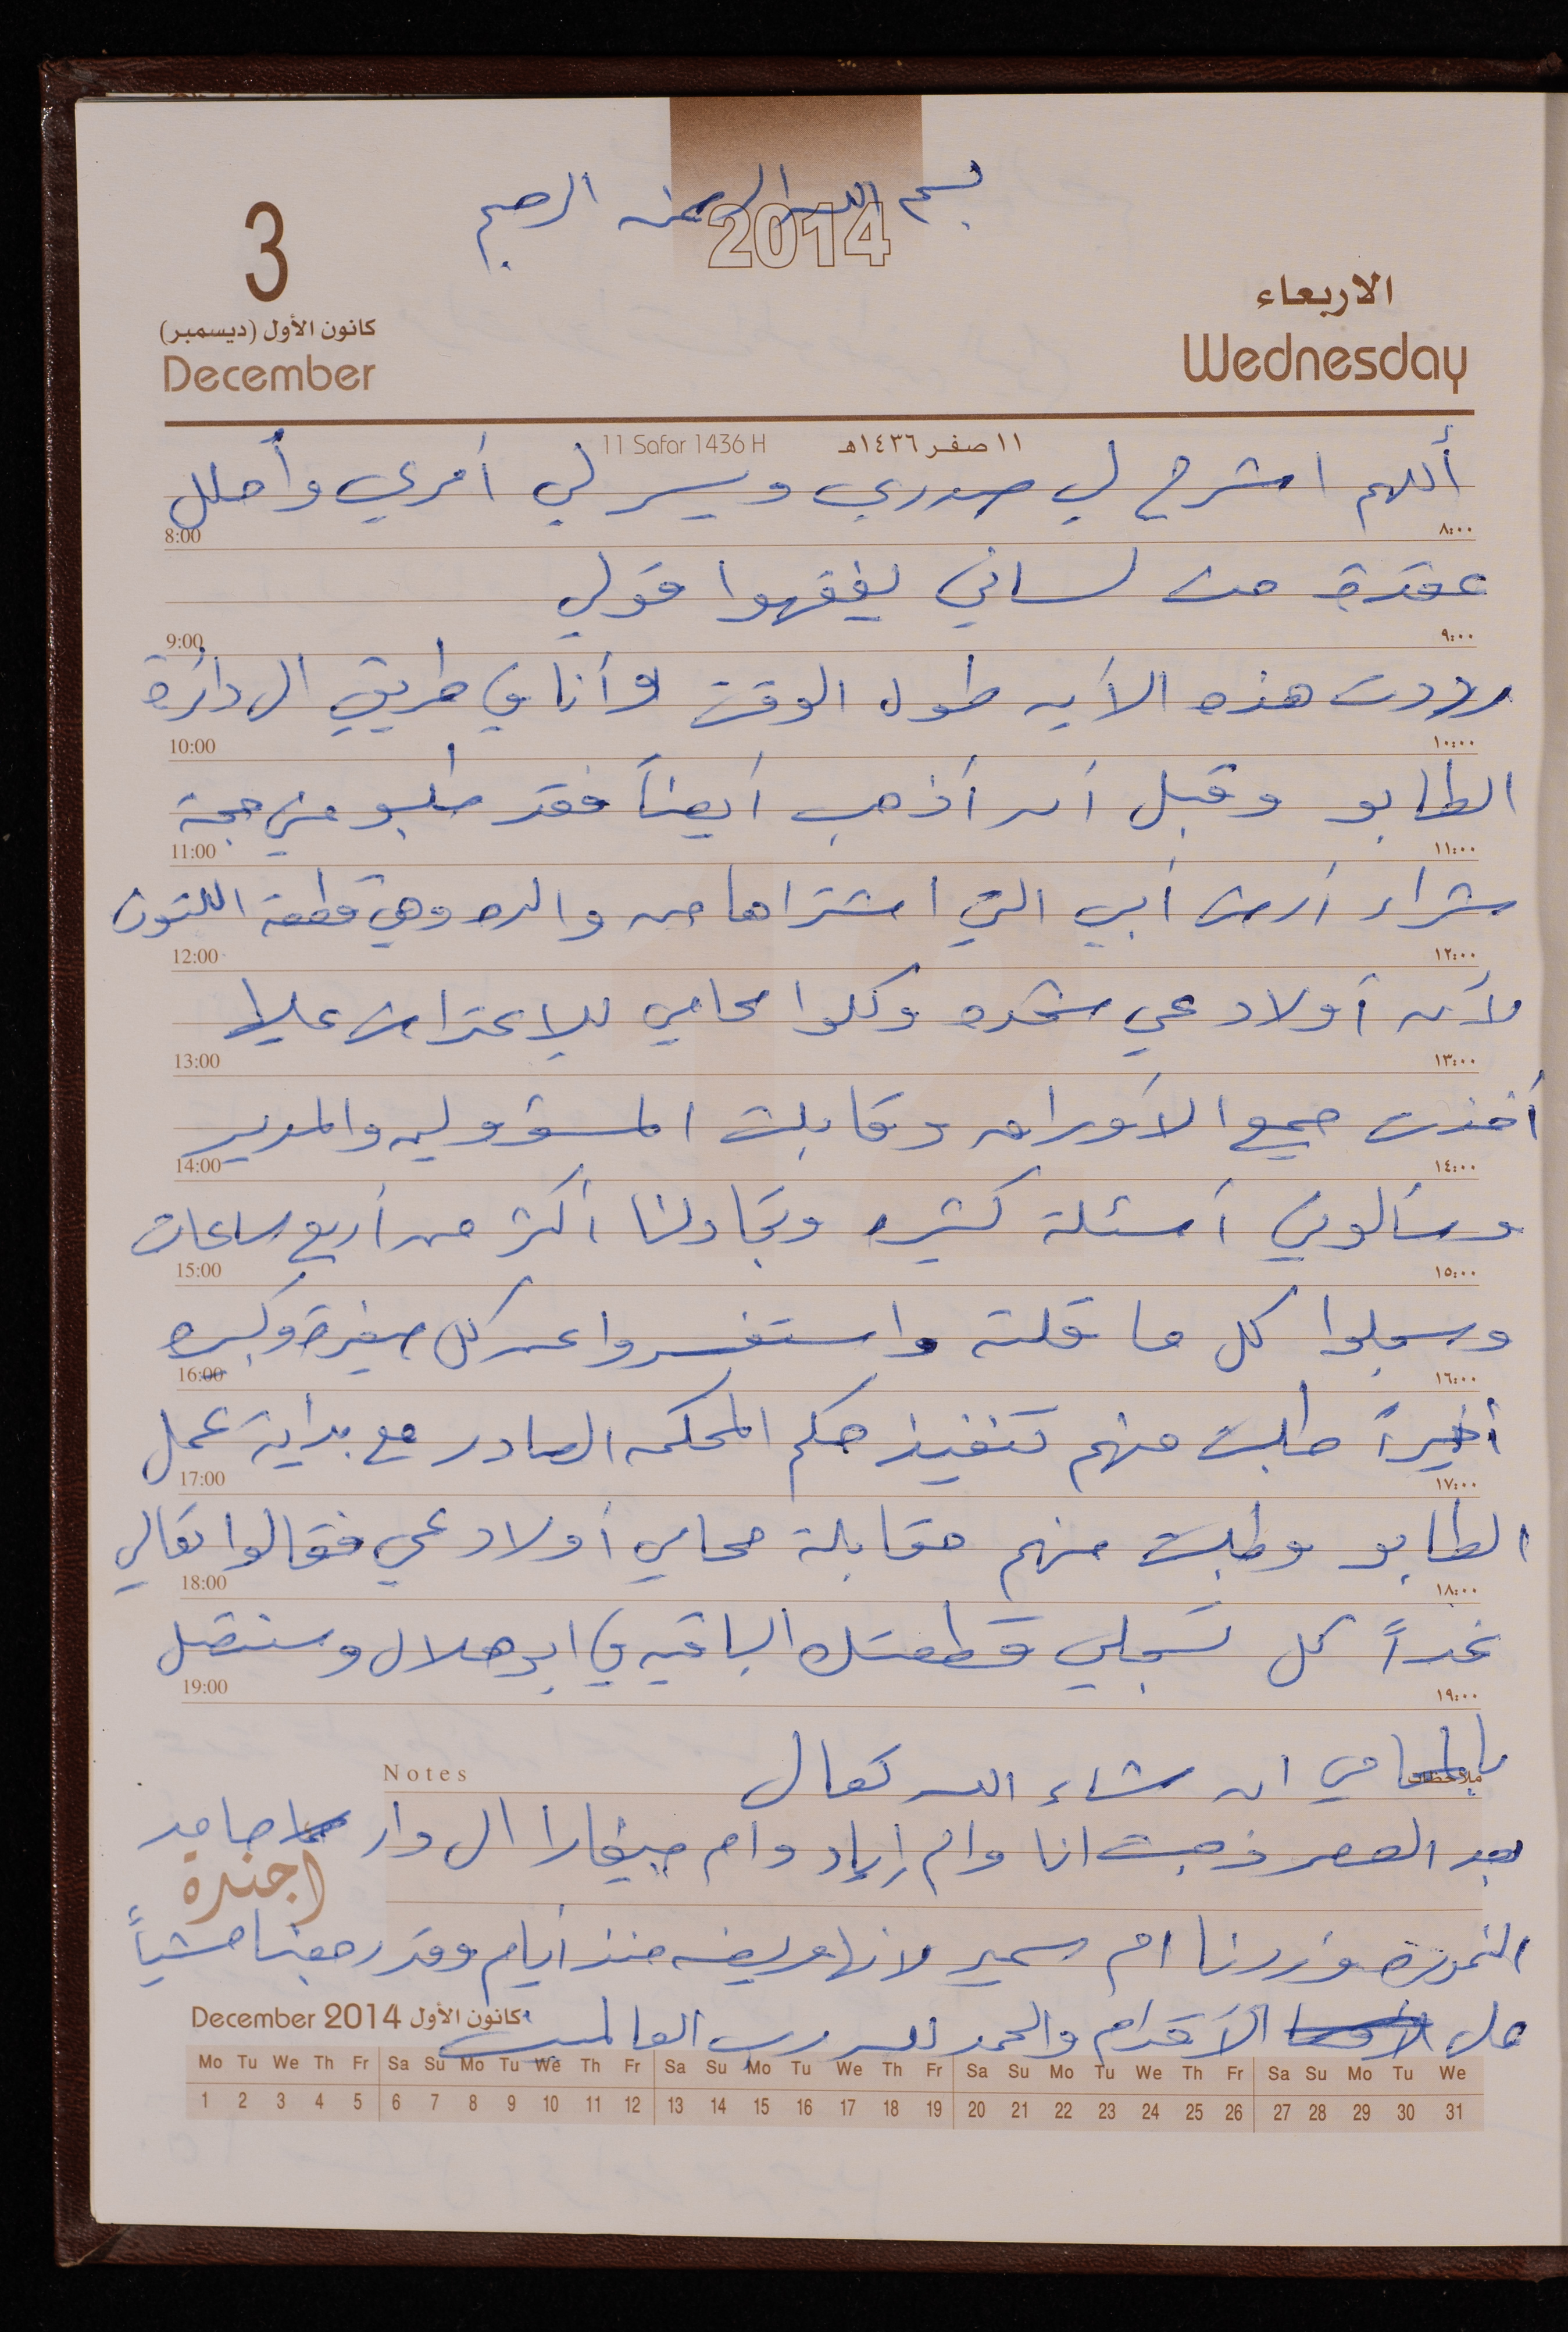 بسم الله الرحمن الرحيم
2014
3
كانون الأول (ديسمبر)
December
الاربعاء
Wednesday
11 Safar 1436 H ١١ صفر ١٤٣٦هـ
أللهم اشرح لي صدري ويسر لي أمري وأحلل
8:00 ٨:٠٠
عقدة من لساني يفقهوا قولي
9:00 ٩:٠٠
رددت هذه الآيه طول الوقت وأنا في طريقي الى دائرة
10:00 ١٠:٠٠
الطابو وقبل أن أذهب أيضاً فقد طلبو مني حجة
11:00 ١١:٠٠
شراء أرض أبي التي اشتراها من والده وهي قطعة
12:00 ١٢:٠٠
لأن أولاد عمي وكلوا محامي للإعتراض عليها
13:00 ١٣:٠٠
أخذت جميع الأوراق وقابلت المسؤولين والمدير
14:00 ١٤:٠٠
وسألوني أسئلة كثيره وتجادلنا أكثر من أربع ساعات
15:00 ١٥:٠٠
وسجلوا كل ما قلته واستفسروا عن كل صغيرة وكبيره
16:00 ١٦:٠٠
أخيراً طلبت منهم تنفيذ حكم المحكمه الصادر مع بداية عمل
17:00 ١٧:٠٠
الطابو وطلبت منهم مقابلة محامي أولاد عمي فقالوا تعالي
18:00 ١٨:٠٠
غداً كي تسجلي قطعتك الباقيه في ابو هلال وسنتصل
19:00 ١٩:٠٠
بالمحامي ان شاء الله تعالى
Notes ملاحظات
بعد العصر ذهبت انا وام إياد وام جيفارا الى دار حامد
اجندة
وزرنا ام سمير لانها مريضه منذ أيام وقد رجعنا مشياً
على الأقدام والحمد لله رب العالمين
December 2014 كانون الأول
Mo Tu We Th Fr Sa Su Mo Tu We Th Fr Sa Su Mo Tu We Th Fr Sa Su Mo Tu We Th Fr Sa Su Mo Tu We
1 2 3 4 5 6 7 8 9 10 11 12 13 14 15 16 17 18 19 20 21 22 23 24 25 26 27 28 29 30 31